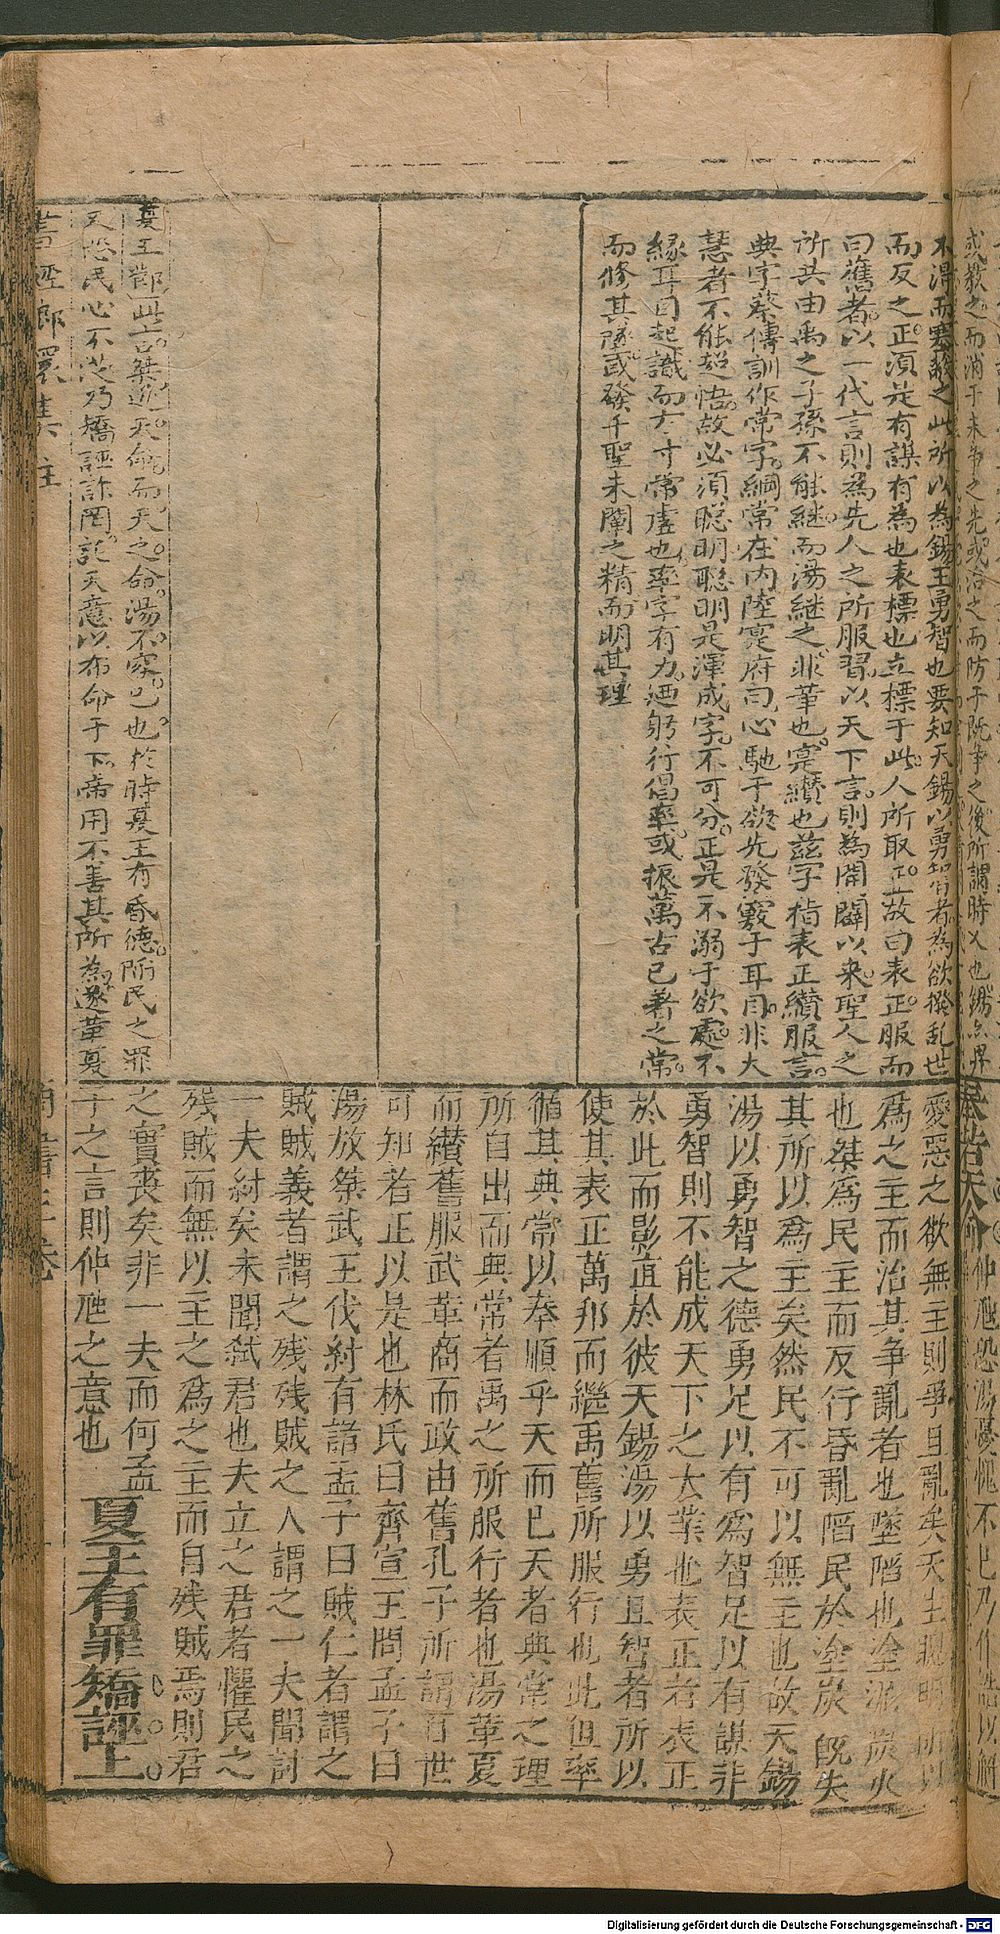 不得而寒熱之此所以為錫王勇智也要知天錫以勇智者為欲撥乱世
而反之正須是有謀有為也表標也立標于此人所取正故曰表正服而
曰舊者以一代言則為先人之所服習以天下言則為開闢以來聖人之
所共由禹之子孫不能継而湯継之非革也寔纘也兹字指表正纘服言
典字蔡傳訓作常字綱常在內陸寔府曰心馳于欲先發竅于耳目非大
慧者不能超悟故必須聰明聰明是渾成字不可分正是不溺于欲處不
緣耳目起識而方寸常虚也率字有力廼躬行倡率或振萬古已著之常
而修其墜或發千聖未闡之精而明其理
夏王鄭此言桀逆天命而天之命湯不容已也於時夏王有昏德所民之罪
又恐民心不从乃矯誣詐罔託天意以布命于下帝用不善其所為遂革夏
愛惡之欲無主則爭且亂矣天生聰明所以
為之主而治其争亂者也墜陷也塗泥炭火
也桀爲民主而反行昏亂陷民於塗炭既失
其所以爲主矣然民不可以無主也故天錫
湯以勇智之德勇足以有爲智足以有謀非
勇智則不能成天下之大業也表正者表正
於此而影直於彼天錫湯以勇且智者所以
使其表正萬邦而繼禹舊所服行也此但率
循其典常以奉順乎天而已天者典常之理
所自出而典常者禹之所服行者也湯革夏
而纘舊服武革商而政由舊孔子所謂百世
可知者正以是也林氏曰齊宣王問孟子曰
湯放桀武王伐紂有諸孟子曰賊仁者謂之
賊賊義者謂之残残賊之人謂之一夫聞誅
一夫紂矣未聞弑君也夫立之君者懼民之
残賊而無以主之爲之主而自残賊焉則君
之實喪矣非一夫而何孟
子之言則仲虺之意也 夏王有罪矯誣上
書經
商書三卷
或教之而消于未争之先或治之而防于既争之後所謂時乂也
天命仲虺恐湯憂愧不已乃作誥以解
Digitalisierung gefördert durch die Deutsche Forschungsgemeinschaft - DFG